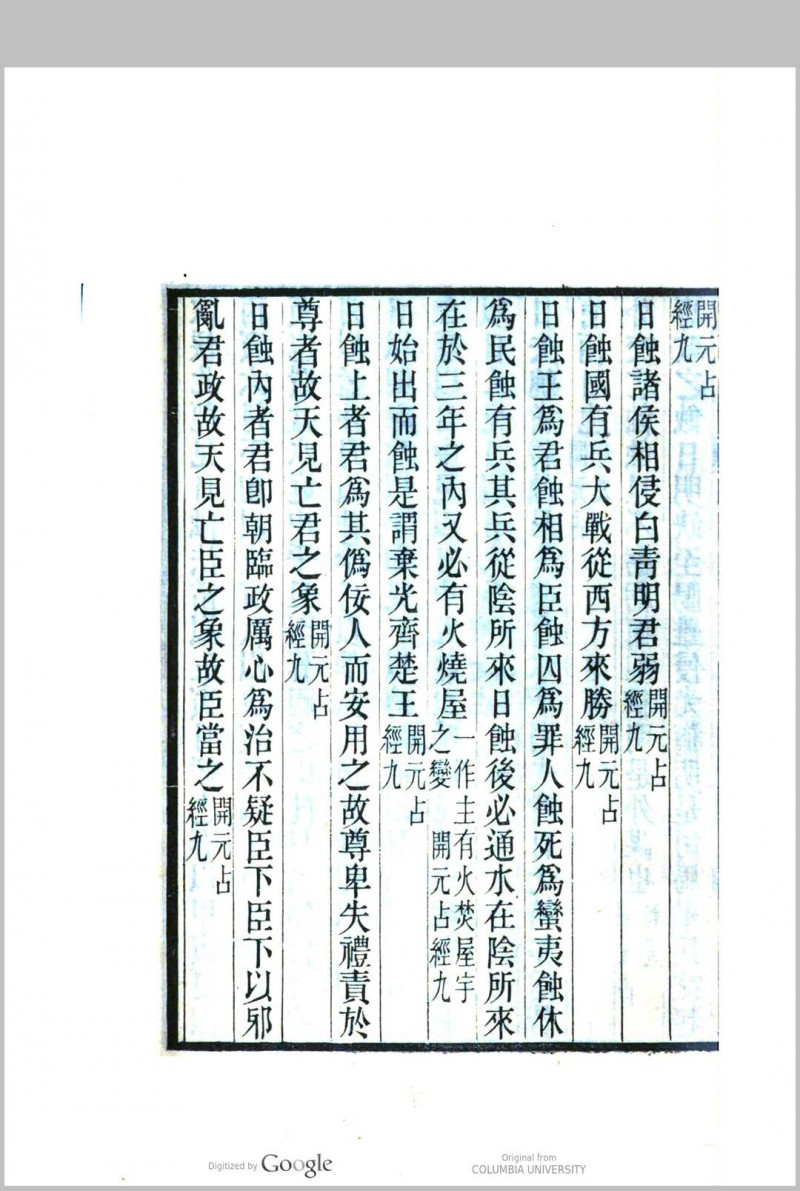 開元占
經九
日蝕諸侯相侵白青明君弱開元占經九
日蝕國有兵大戰從西方來勝開元占經九
日蝕王為君蝕相為臣蝕囚為罪人蝕死為蠻夷蝕休
為民蝕有兵其兵從陰所來日蝕後必通水在陰所來
在於三年之內又必有火燒屋一作主有火焚屋宇之變 開元占經九
日始出而蝕是謂棄光齊楚王開元占經九
日蝕上者君為其偽佞人而安用之故尊卑失禮責於
尊者故天見亡君之象開元占經九
日蝕內者君卽朝臨政厲心為治不疑臣下臣下以邪
亂君政故天見亡臣之象故臣當之開元占經九
Digitized by Google
Original from
COLUMBIA UNIVERSITY